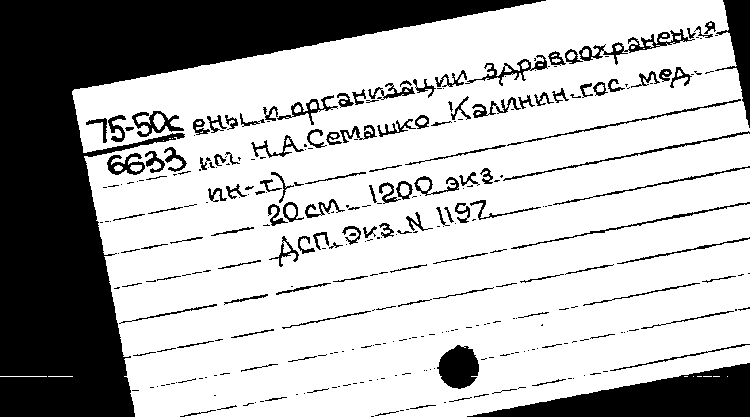 75-50с ены и организации здравоохранения
6633 им. Н.А.Семашко. Калинин. гос. мед.
ин-т).
20 см. 1200 экз.
ДСП. Экз. N 1197.